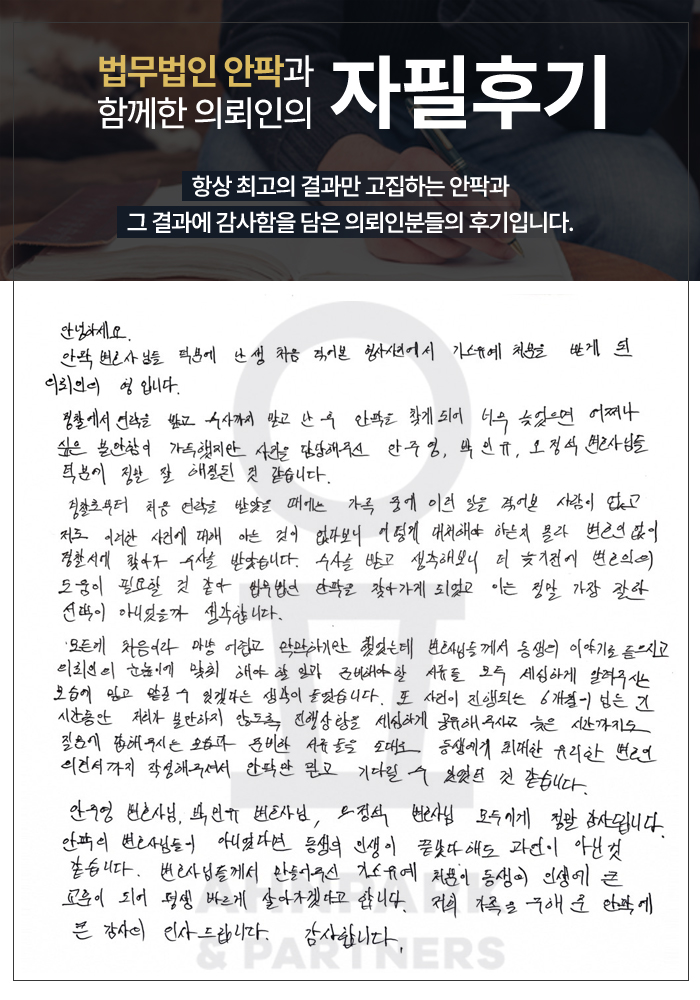 법무법인 안팍과
함께한 의뢰인의
자필후기
항상 최고의 결과만 고집하는 안팍과
그 결과에 감사함을 담은 의뢰인분들의 후기입니다.
안녕하세요.
안팍 변호사님들 덕분에 난생 처음 겪어본 형사사건에서 기소유예 처분을 받게 된
의뢰인의 형 입니다.
경찰에서 연락을 받고 수사까지 받고 난 후 안팍을 찾게 되어 너무 늦었으면 어쩌나
싶은 불안함이 가득했지만 사건을 담당해주신 안주영, 박민규, 오정석 변호사님들
덕분에 정말 잘 해결된 것 같습니다.
경찰로부터 처음 연락을 받았을 때에는 가족 중에 이런 일을 겪어본 사람이 없고
저도 이러한 사건에 대해 아는 것이 없다보니 어떻게 대처해야 하는지 몰라 변호인 없이
경찰서에 찾아가 수사를 받았습니다. 수사를 받고 생각해보니 더 늦기전에 변호인의
도움이 필요할 것 같아 법무법인 안팍을 찾아가게 되었고 이는 정말 가장 잘한
선택이 아니었을까 생각합니다.
모든게 처음이라 마냥 어렵고 막막하기만 했었는데 변호사님들께서 동생의 이야기를 들으시고
의뢰인의 눈높이에 맞춰 해야 할 일과 준비해야 할 서류들 모두 세심하게 알려주시는
모습에 믿고 맡길 수 있겠다는 생각이 들었습니다. 또 사건이 진행되는 6개월이 넘는 긴
시간동안 저희가 불안하지 않도록 진행상황을 세심하게 공유해주시고 늦은 시간까지도
질문에 답해주시는 모습과 준비한 서류들을 토대로 동생에게 최대한 유리한 변호인
의견서까지 작성해주셔서 안팍만 믿고 기다릴 수 있었던 것 같습니다.
안주영 변호사님, 박민규 변호사님, 오정석 변호사님 모두에게 정말 감사드립니다.
안팍의 변호사님들이 아니었다면 동생의 인생이 끝났다해도 과언이 아닌것
같습니다. 변호사님들께서 만들어주신 기소유예 처분이 동생의 인생에 큰
교훈이 되어 평생 바르게 살아가겠다고 합니다. 저희 가족을 구해 준 안팍에
큰 감사의 인사 드립니다. 감사합니다.
AHNPARK
& PARTNERS